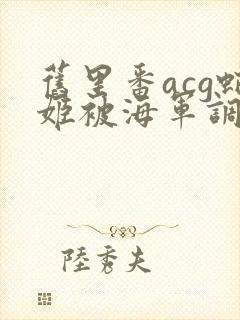 舊里番acg蛇
姬被海軍調
陸秀夫